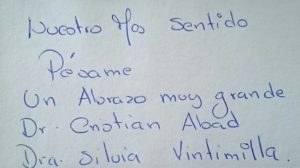 Nuestro Mas Sentido
Pésame
Un Abrazo muy grande
Dr. Cristian Abad
Dra. Silvia Vintimilla.